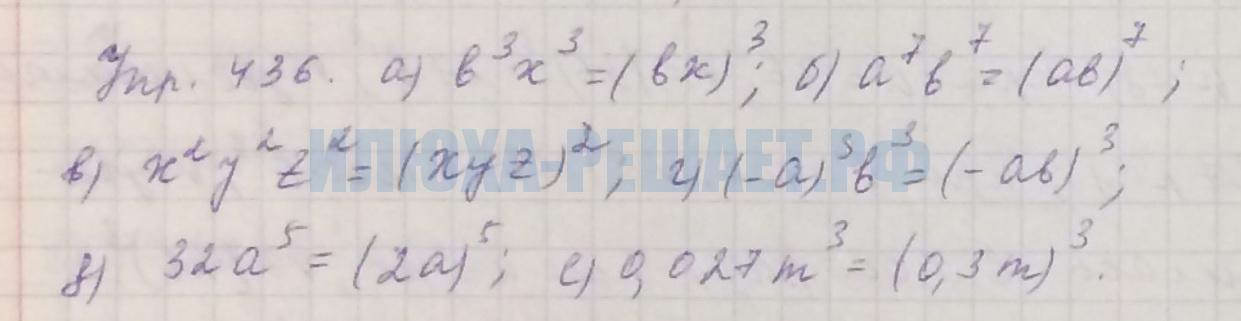 Упр. 436. а) b³x³=(bx)³; б) a⁷b⁷=(ab)⁷;
в) x²y²z²=(xyz)²; г) (-a)³b³=(-ab)³;
д) 32a⁵=(2a)⁵; е) 0,027m³=(0,3m)³.
ИЛЮХА-РЕШАЕТ.РФ